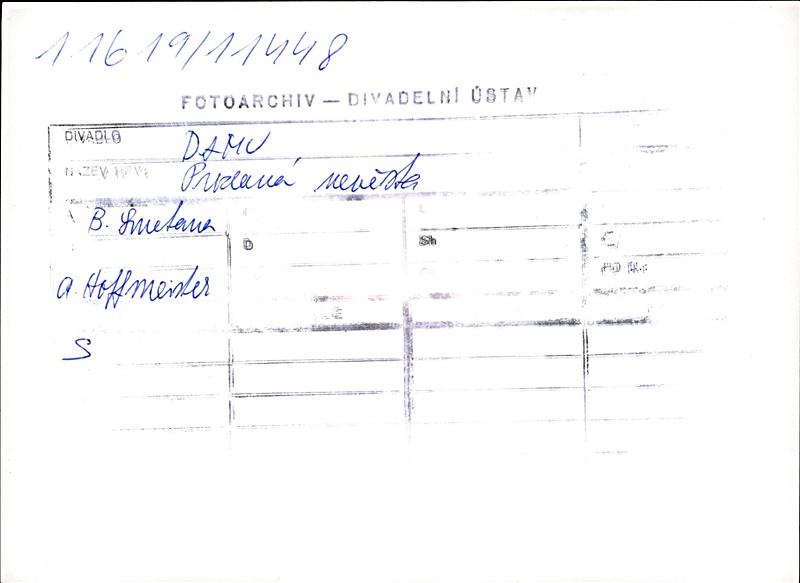 11619/11448
FOTOARCHIV — DIVADELNÍ ÚSTAV
DIVADLO DAMU
NÁZEV HRY Prodaná nevěsta
A B. Smetana
D Sh
a. Hoffmeister
S